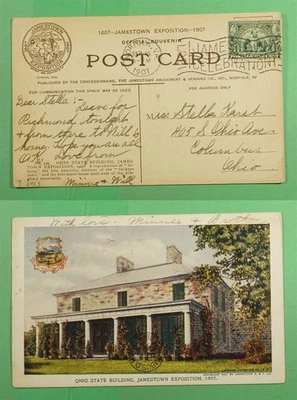 1607-JAMESTOWN EXPOSITION-1907
OFFICIAL SOUVENIR
POST CARD
1907
JAMESTOWN
CELEBRATION
PUBLISHED BY THE CONCESSIONAIRE, THE JAMESTOWN AMUSEMENT & VENDING CO., INC., NORFOLK, VA.
FOR COMMUNICATION THIS SPACE MAY BE USED
FOR ADDRESS ONLY
Dear Stella: Leave for
Richmond tonight
& from there to Will's
home. Hope you are all
O.K. Love from
Minnie & Will
OHIO STATE BUILDING, JAMES-
TOWN EXPOSITION, 1907
Miss Stella Karst
405 S Ohio Ave
Columbus
Ohio
With love. Minnie &
OHIO
OHIO STATE BUILDING, JAMESTOWN EXPOSITION, 1907.